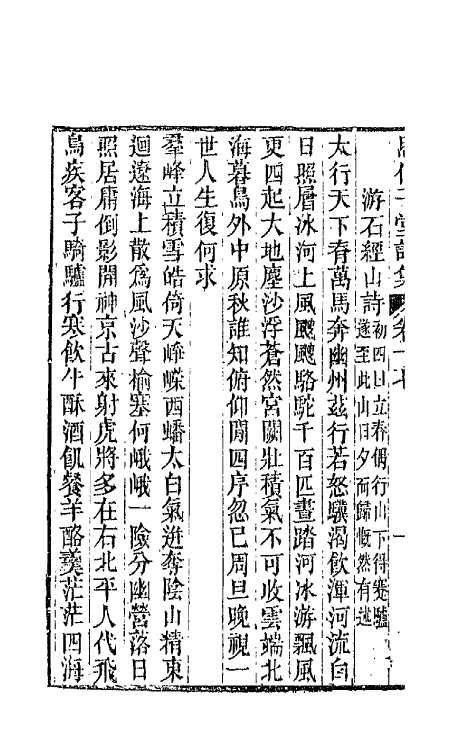 詩集
游石經山詩初四日立春偶行山下得蹇驢
遂至此山日夕而歸慨然有述
太行天下脊萬馬奔幽州茲行若怒驥渴飲渾河流白
日照層冰河上風颼颼駱駝千百匹晝踏河冰游飄風
更四起大地塵沙浮蒼然宮闕壯積氣不可收雲端北
海暮鳥外中原秋誰知俯仰間四序忽已周旦晚視一
世人生復何求
羣峰立積雪皓倚天崢嶸西蟠太白氣逬奪陰山精東
迴遼海上散為風沙聲榆塞何峨峨一險分幽營落日
照居庸倒影開神京古來射虎將多在右北平人代飛
鳥疾客子騎驢行寒飲牛酥酒飢餐羊酪羹茫茫四海